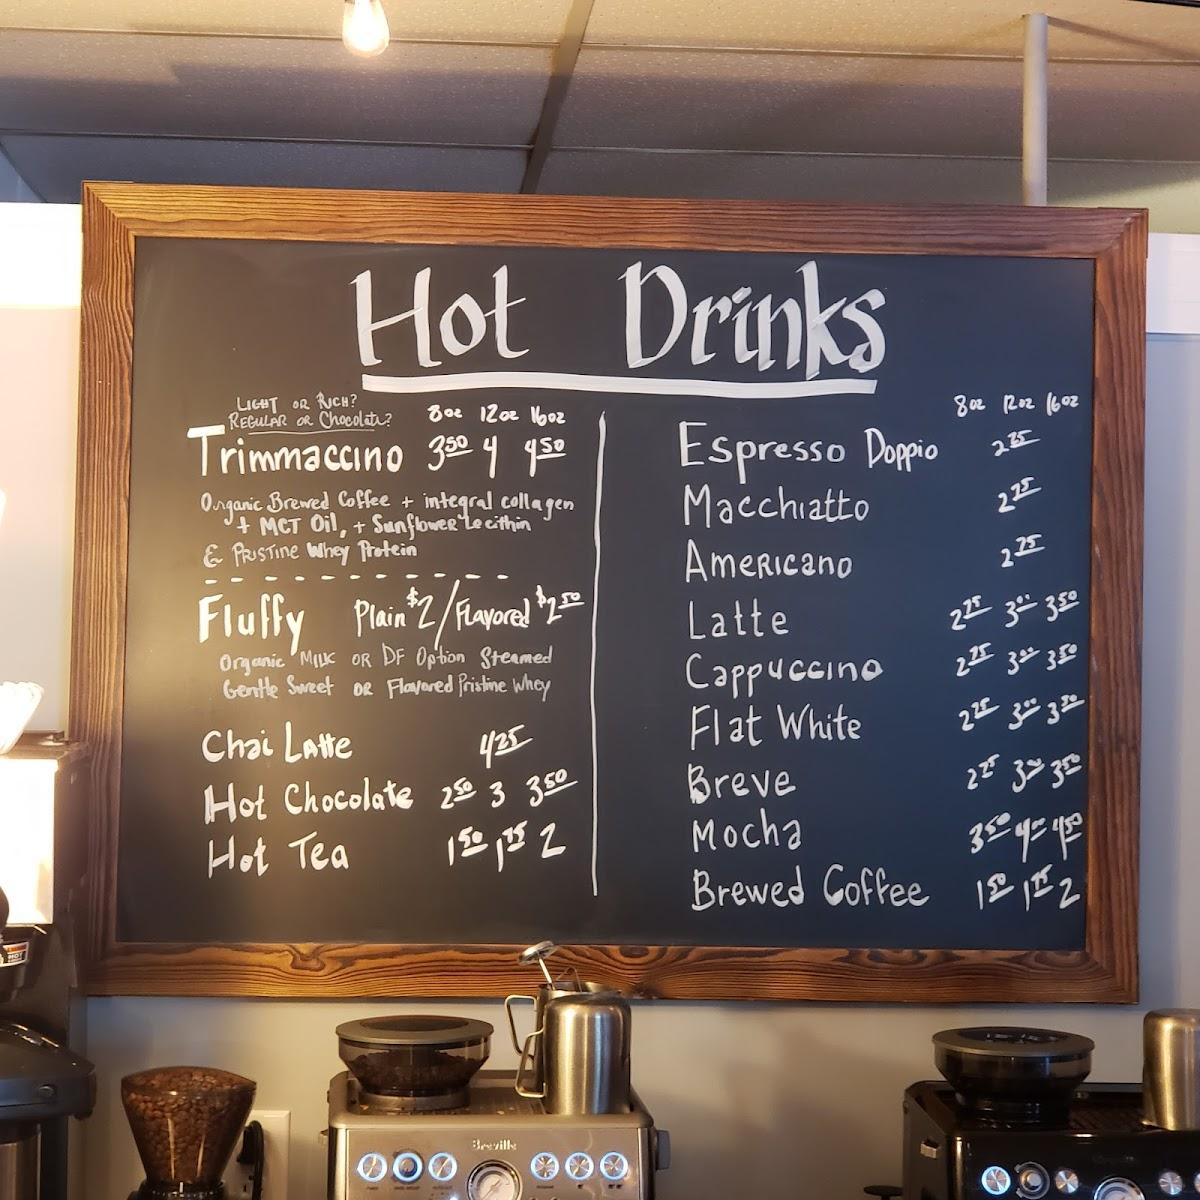 Hot Drinks
LIGHT OR RICH?
REGULAR OR Chocolate?
8oz 12oz 16oz
Trimmaccino 3.50 4 4.50
Organic Brewed Coffee + integral collagen
+ MCT Oil, + Sunflower Lecithin
& PRISTINE Whey Protein
Fluffy Plain $2/Flavored $2.50
Organic MILK OR DF Option Steamed
Gentle Sweet OR Flavored Pristine Whey
Chai Latte 4.25
Hot Chocolate 2.50 3 3.50
Hot Tea 1.50 1.75 2
8oz 12oz 16oz
Espresso Doppio 2.25
Macchiatto 2.75
Americano 2.75
Latte 2.75 3.00 3.50
Cappuccino 2.75 3.00 3.50
Flat White 2.75 3.00 3.50
Breve 2.75 3.00 3.50
Mocha 3.50 4.00 4.50
Brewed Coffee 1.50 1.75 2
Breville